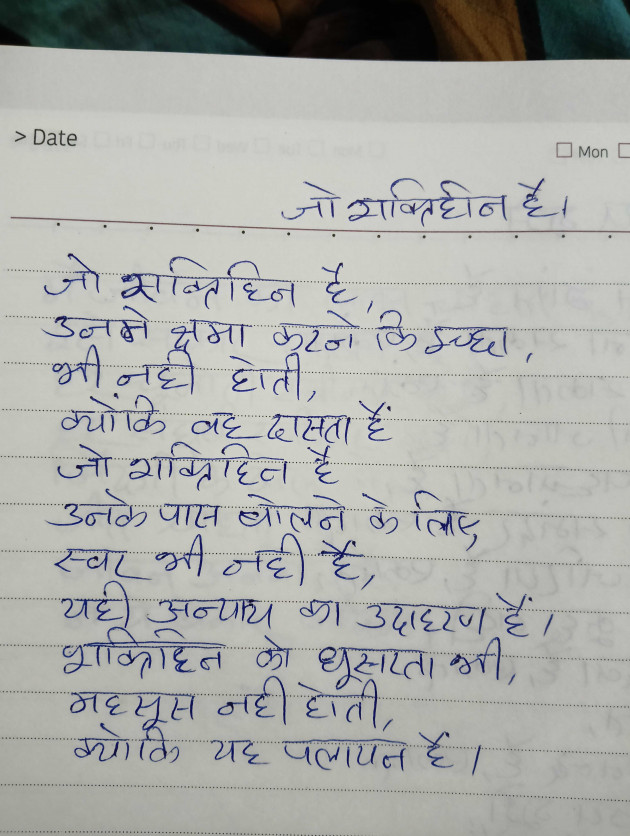 > Date
Mon
जो शक्तिहीन है।
जो शक्तिहिन है,
उनमे क्षमा करने कि इच्छा,
भी नही होती,
क्योंकि वह दासता हैं
जो शक्तिहिन है
उनके पास बोलने के लिए,
स्वर भी नही हैं,
यही अन्याय का उदाहरण हैं।
शक्तिहिन को धूसरता भी,
महसूस नही होती,
क्योकि यह पलायन हैं।